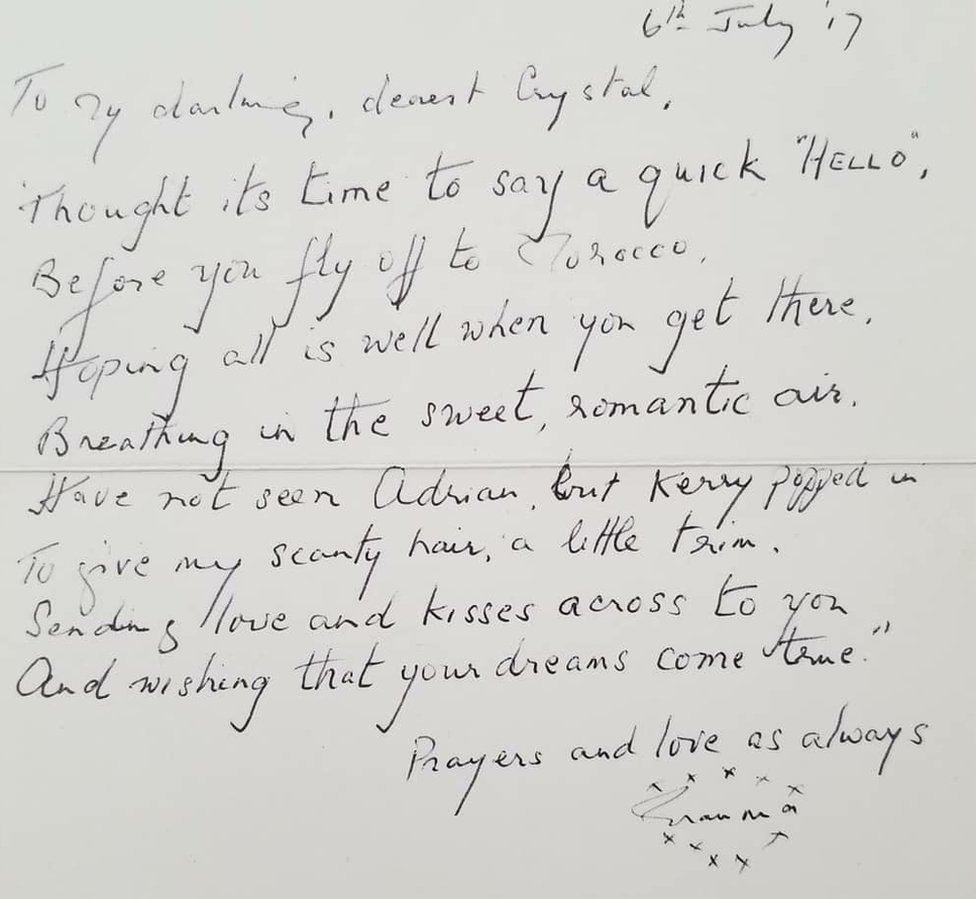 6th July '17
To My darling, dearest Crystal,
Thought its time to say a quick "HELLO",
Before you fly off to Morocco,
Hoping all is well when you get there,
Breathing in the sweet, romantic air.
Have not seen Adrian, but Kerry popped in
To give my scanty hair, a little trim.
Sending love and kisses across to you
And wishing that your dreams come "true."
Prayers and love as always
x x x x x
Granma
x x x x x